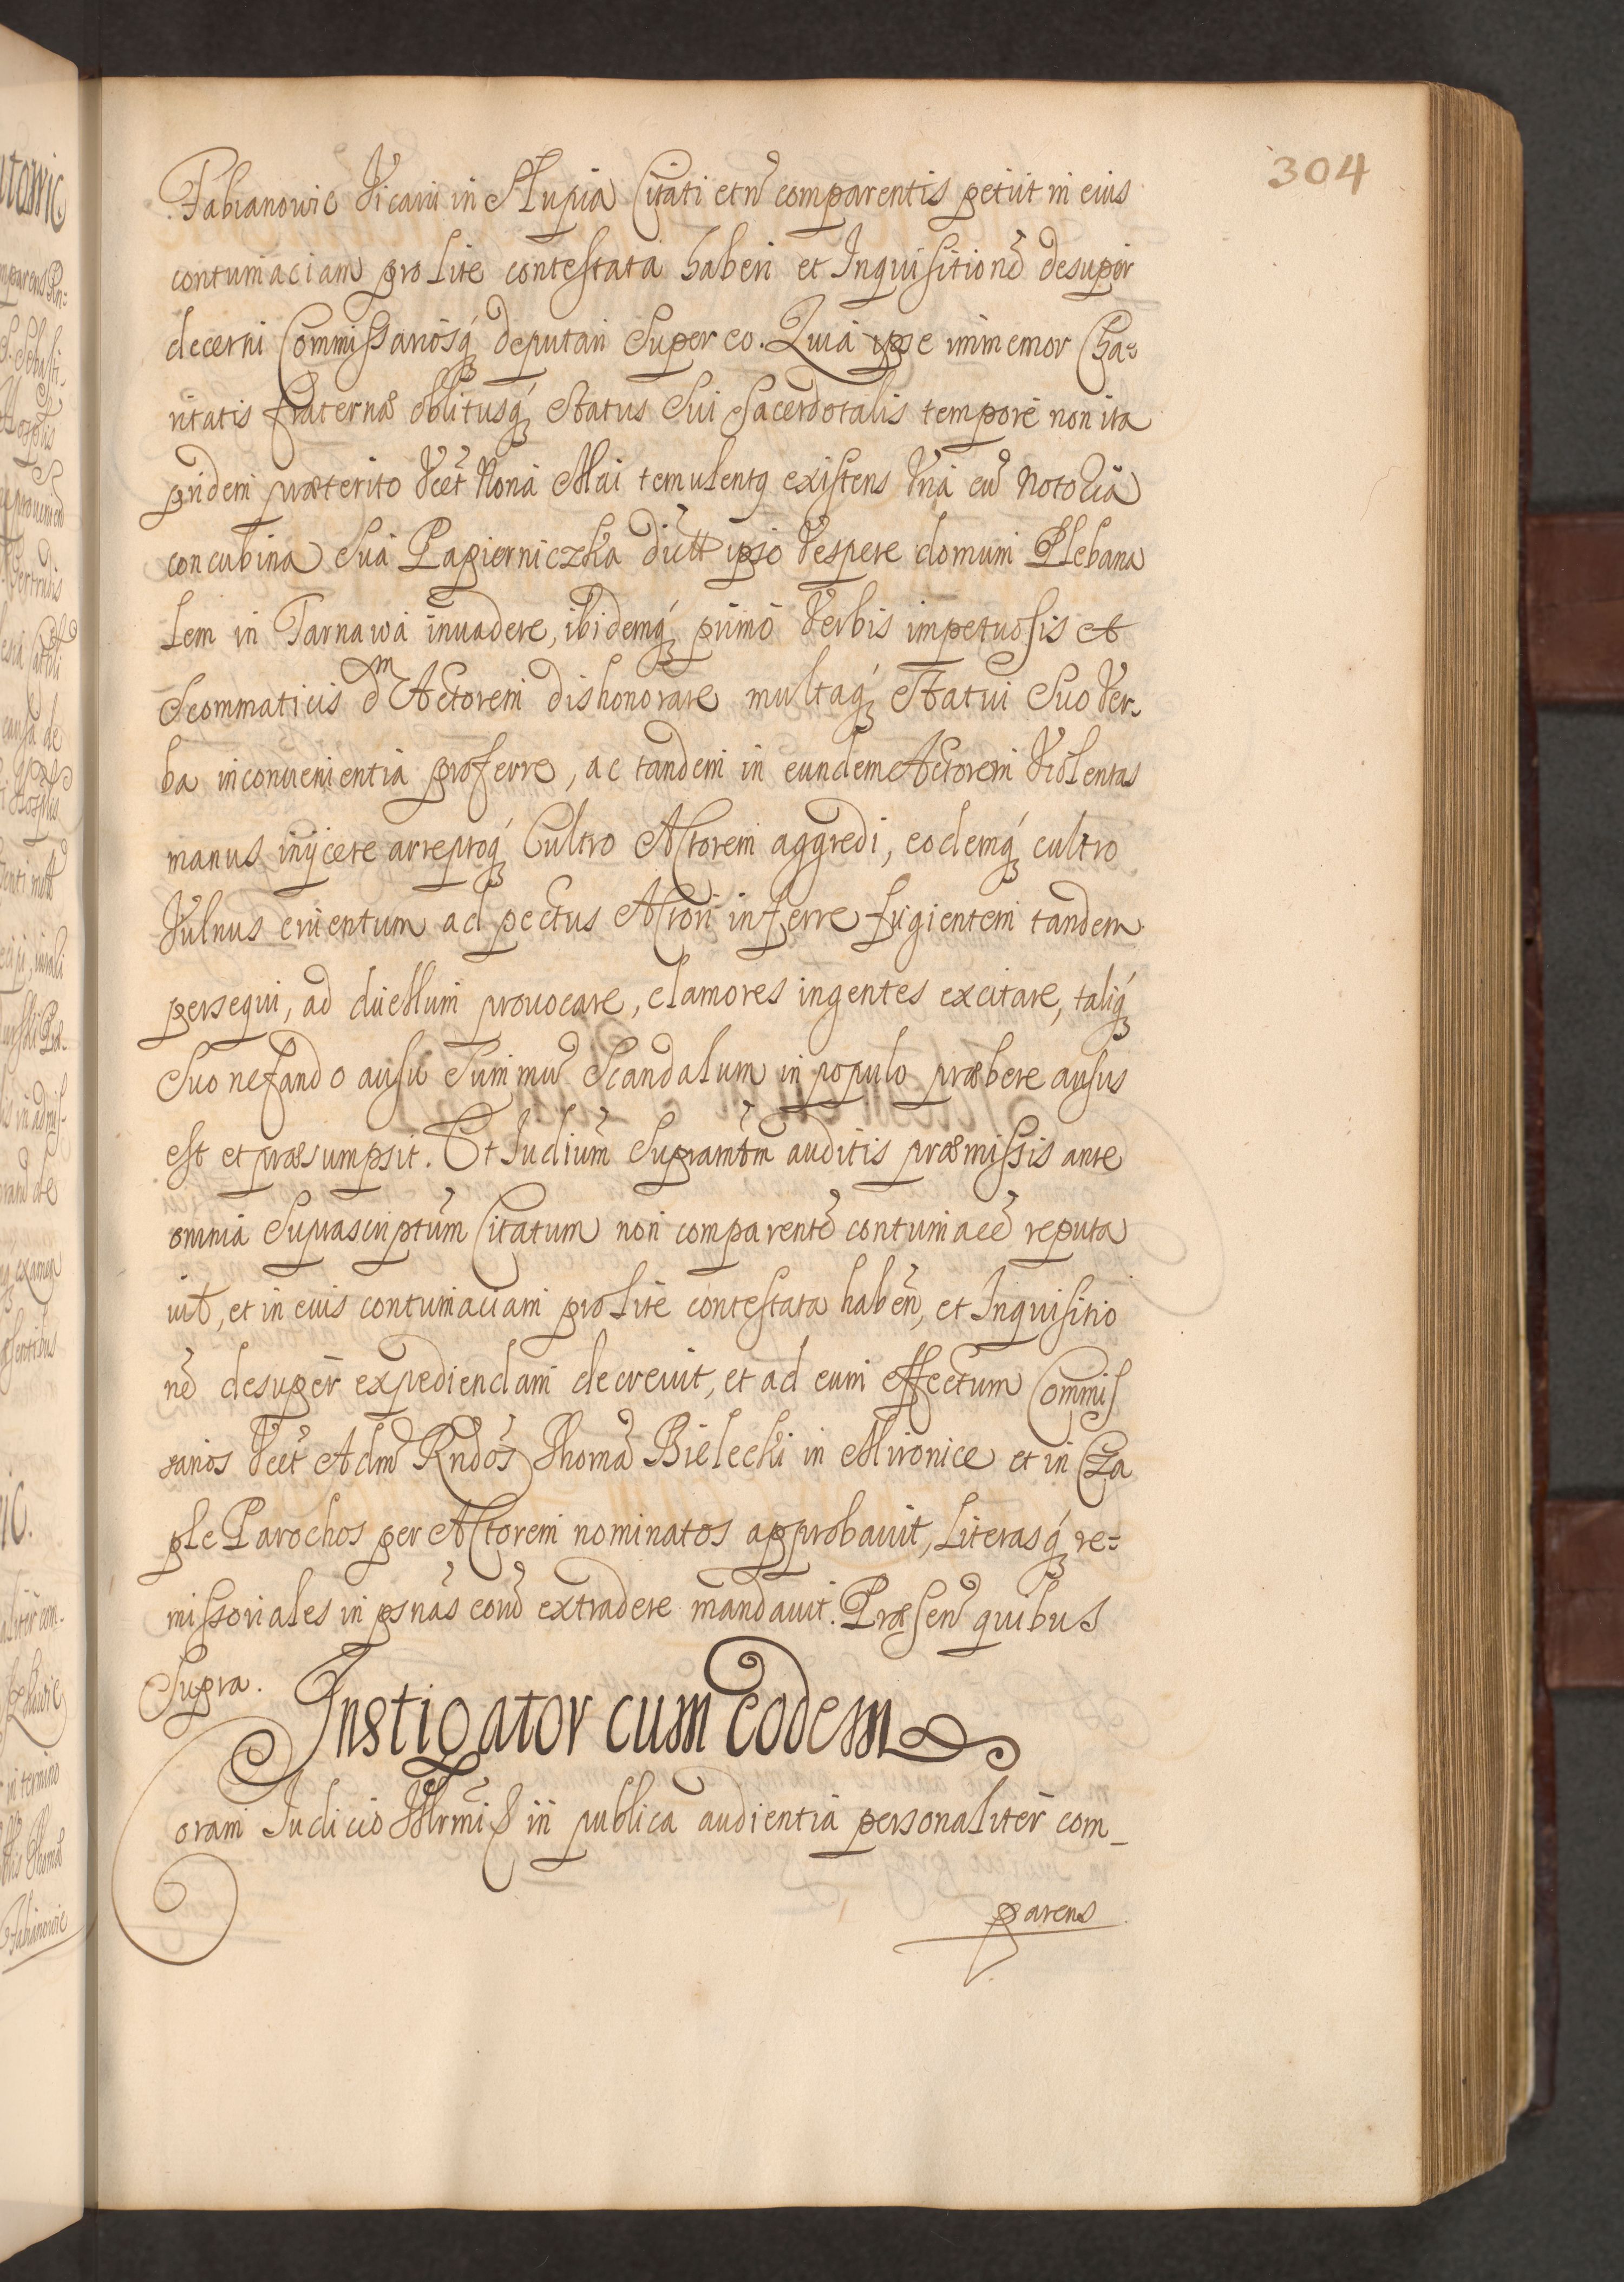 304
Fabianowic Vicarii in Słupia Citati et n̄ comparentis petiit in eius
contumaciam pro Lite contestata haberi et Inquisitionē desuper
decerni Commissariosq́ deputari Super eo. Quia ipse immemor Cha=
ritatis fraternæ oblitusq́ Status Sui Sacerdotalis tempore non ita
pridem præterito Vcet Nona Maii temulentq existens Vna cū Notoria
concubina Sua Papierniczka dictt ipso Vespere domum Plebana
Lem in Tarnawa inuadere, ibidemq́ primo Verbis impetuosis et
Scommaticis dm Actorem dishonorare multaq́ Statui Suo Ver-
ba inconuenientia proferre, ac tandem in eundem Actorem Violentas
manus iniicere arreptoq́ Cultro Actorem aggredi, eodemq́ cultro
Vulnus cruentum ad pectus Actori inferre fugientem tandem
persequi, ad duellum prouocare, clamores ingentes excitare, taliq́
Suo nefando ausu Summū Scandalum in populo præbere ausus
est et præsumpsit. Et Iudium̄ Supramtm̄ auditis præmissis ante
omnia Suprascriptum̄ Citatum non comparentē contumacē reputa
uit, et in euis contumaciam pro Lite contestata haben̄, et Inquisitio
nē desuper expediendam decreuit, et ad eum effectum Commis
sarios Vcet Adm̄ Rndos̄ Thomā Bielecki in Mironice et in Cza
ple Parochos per Actorem nominatos approbauit, Literasq́ re=
missoriales in psnas̄ eoru̅d extradere mandauit. Præsen̄ quibus
Supra.
Instigator cum Eodem
Coram Iudicio Illrmi S ii publica audientia personaliter com_
parens